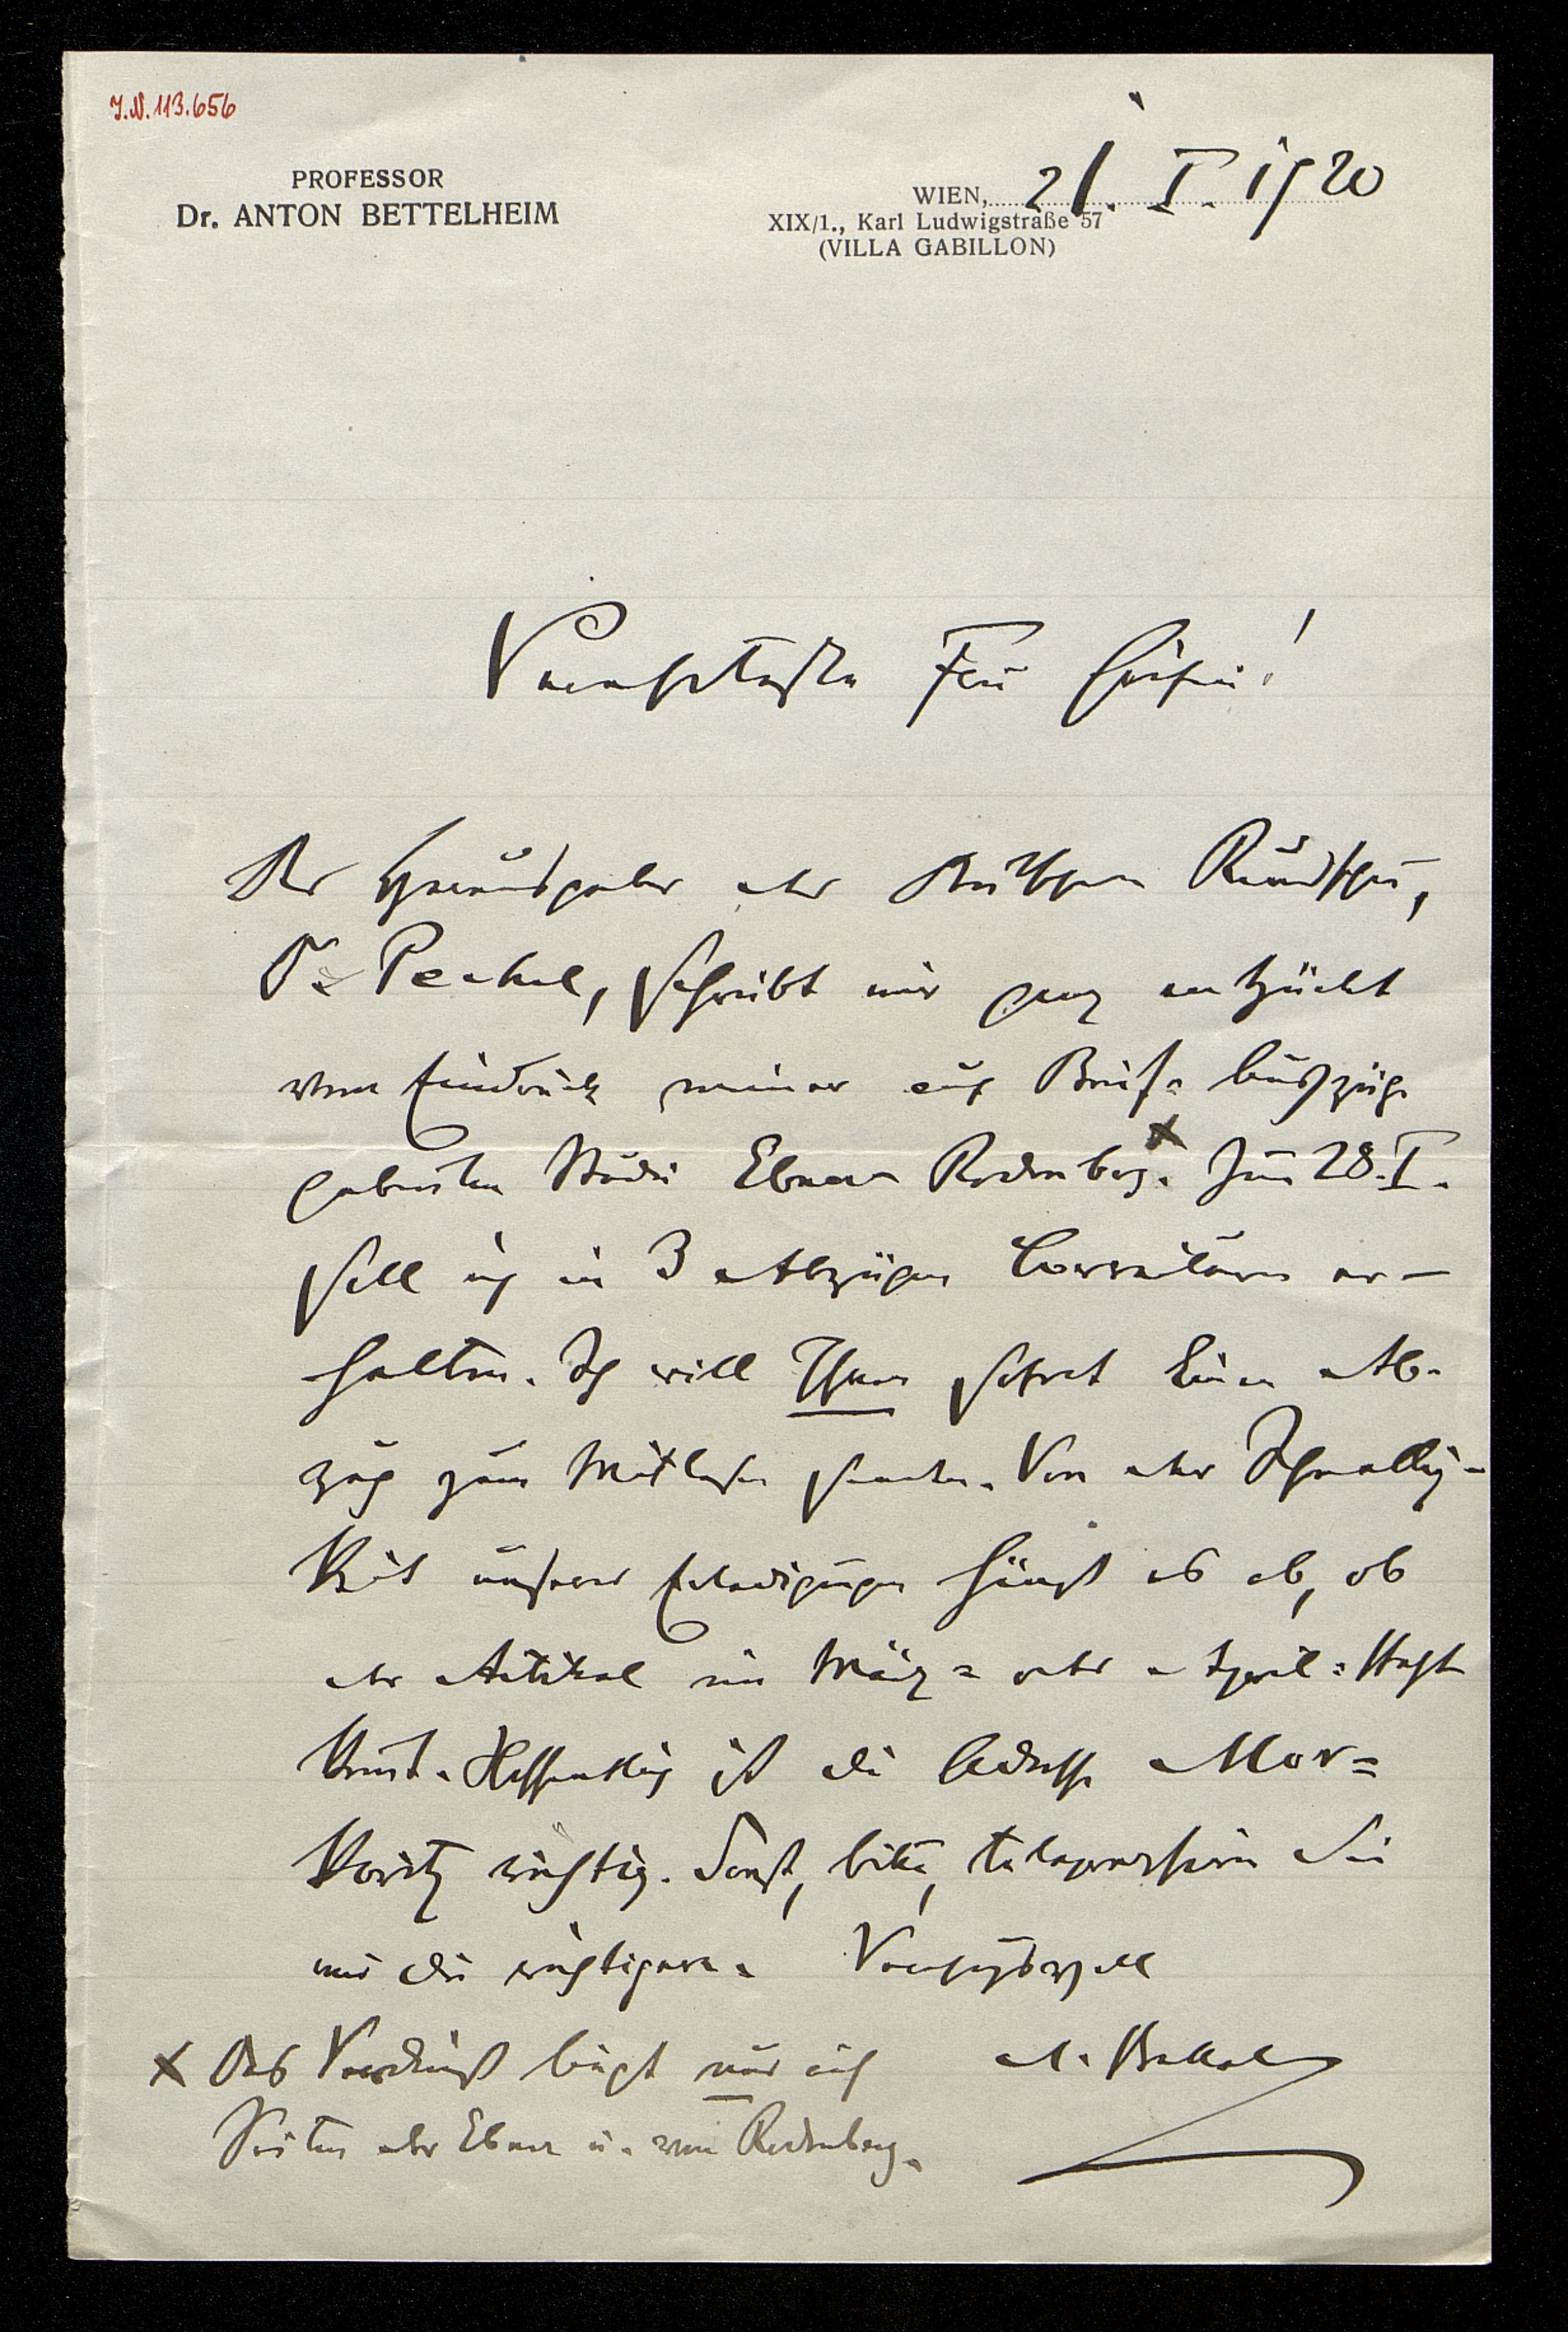 J.N. 113.656
PROFESSOR
Dr. ANTON BETTELHEIM
WIEN, 21. I. 1920
XIX/1., Karl Ludwigstraße 57
(VILLA GABILLON)
Verehrteste Frau Gräfin!
Der Herausgeber der Deutschen Rundschau,
Dr Pechel, schreibt mir ganz entzückt
vom Eindruck meiner auf Brief Auszüge
gebauten Studie Ebner Rodenberg.x Zum 28. I.
soll ich in 3 Abzügen Correcturen er-
halten. Ich will Ihnen sofort Einen Ab-
zug zum Mitlesen senden. Von der Schnellig-
keit unserer Erledigungen hängt es ab, ob
der Artikel im März= oder April=Heft
kommt. Hoffentlich ist die Adresse Mor=
kowitz richtig. Sonst, bitte, telegraphieren Sie
mir die richtigere. Verehrungsvoll
A. Bettelh
x Das Verdienst liegt nur auf
Seiten der Ebner u. von Rodenberg.